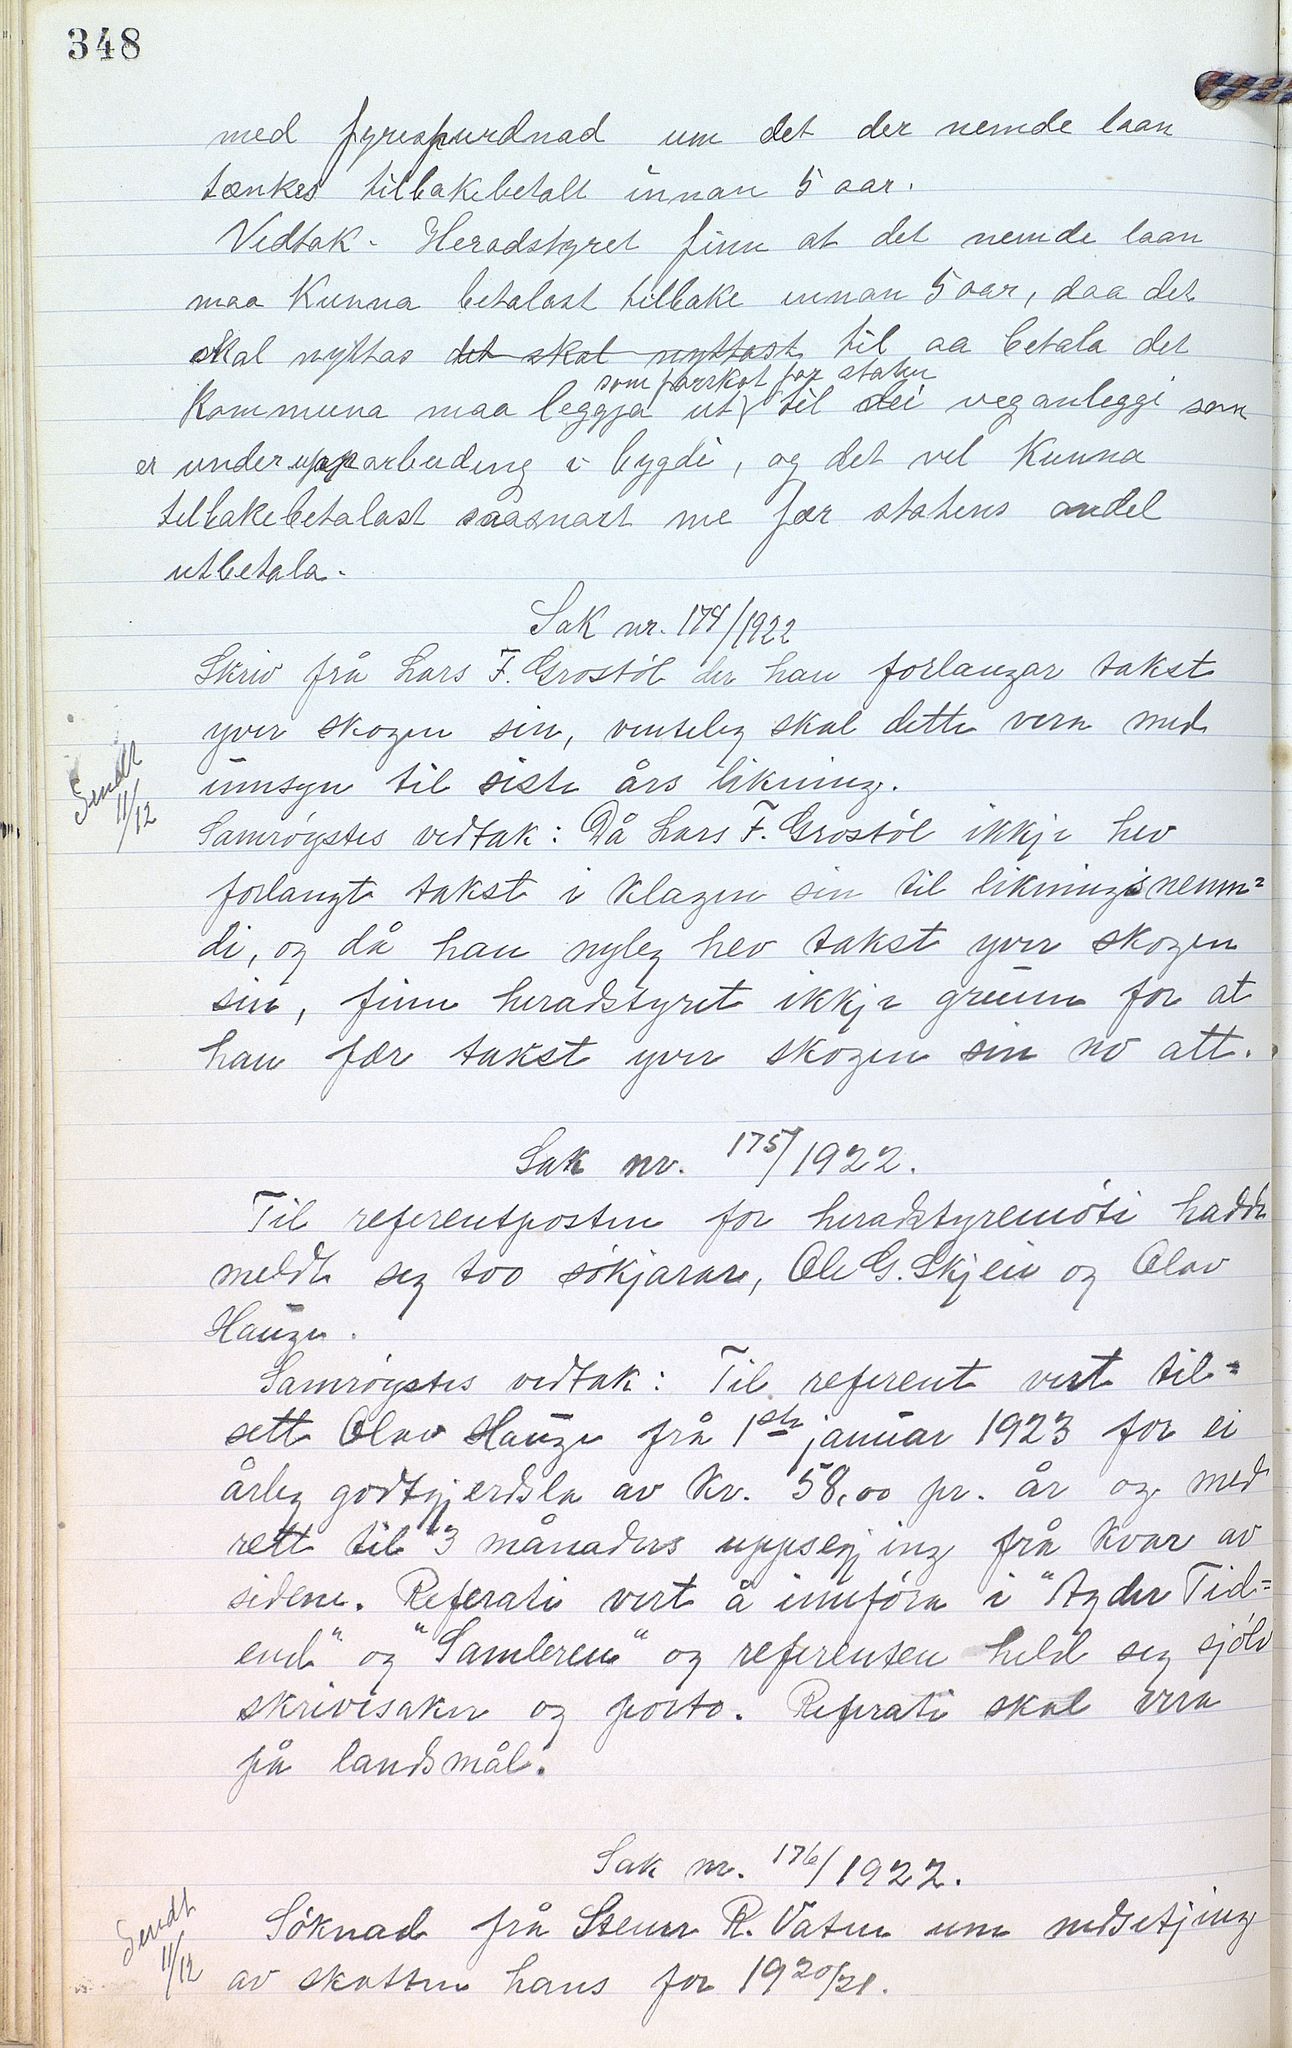 348
med fyrespurdnad um det der nemde laan
tenkes tilbakebetalt innan 5 aar.
Vedtak. Heradstyret finn at det nemde laan
maa kunna betalast tilbake innan 5 aar, daa det
skal nyttas det skal nyttast til aa betala det
som forskot for staten
kommuna maa leggja ut til dei veganleggi som
er under upparbeiding i bygdi, og det vel kunna
tilbakebetalast saasnart me fær statens andel
utbetala.
Sak nr. 174/1922
Skriv frå Lars F. Grostöl der han forlangar takst
yver skogen sin, venteleg skal dette vera med
umsyn til siste års likning.
Sendt
11/12
Samröystes vedtak: Då Lars F. Grostöl ikkje hev
forlangt takst i klagen sin til likningsnemn=
di, og då han nyleg hev takst yver skogen
sin, finn heradstyret ikkje grunn for at
han fær takst yver skogen sin no att.
Sak nr. 175/1922.
Til referentposten for heradstyremöti hadde
meldt seg too sökjarar, Ole G. Skjeie og Olav
Hauge.
Samröystes vedtak: Til referent vert til=
sett Olav Hauge frå 1ste januar 1923 for ei
årleg godtgjerdsla av kr. 58,00 pr. år og med
rett til 3 månaders uppsegjing frå kvar av
sidene. Referati vert å innföra i "Agder Tid=
end" og "Samleren" og referenten held seg sjölv
skrivesaker og porto. Referati skal vera
på landsmål.
Sak nr. 176/1922.
Sendt
11/12
Söknad frå Steinar R. Vatne um nedsetjing
av skatten hans for 1920/21.